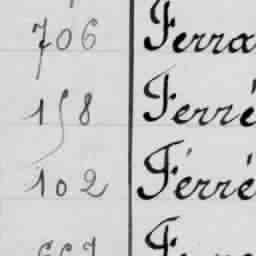 706 Ferra
158 Ferré
102 Ferré